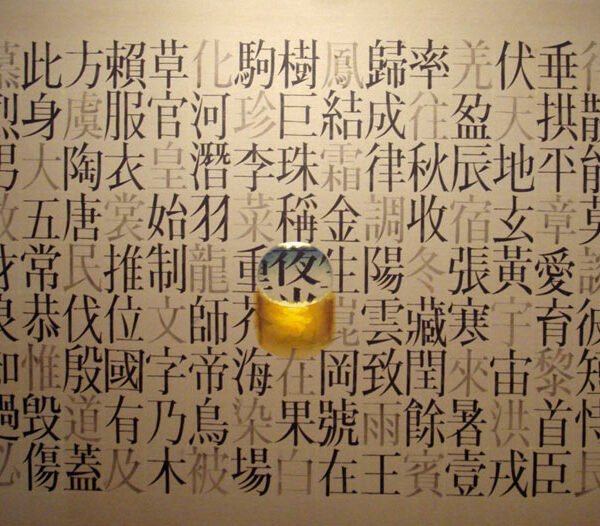 能莫談彼短恃
垂拱平章愛育黎首臣
伏天地玄黃宇宙洪戎
羌盈辰宿張寒來暑壹
率往秋收冬藏閏餘賓
歸成律調陽雲致雨王
鳳結霜金生崑岡號在
樹巨珠稱夜光在果白
駒珍李菜重芥海染場
化河潛羽龍師帝鳥被
草官皇始制文字乃木
賴服衣裳推位國有及
方虞陶唐民伐殷道蓋
此身大五常恭惟毀傷
慕烈男效才良知過必